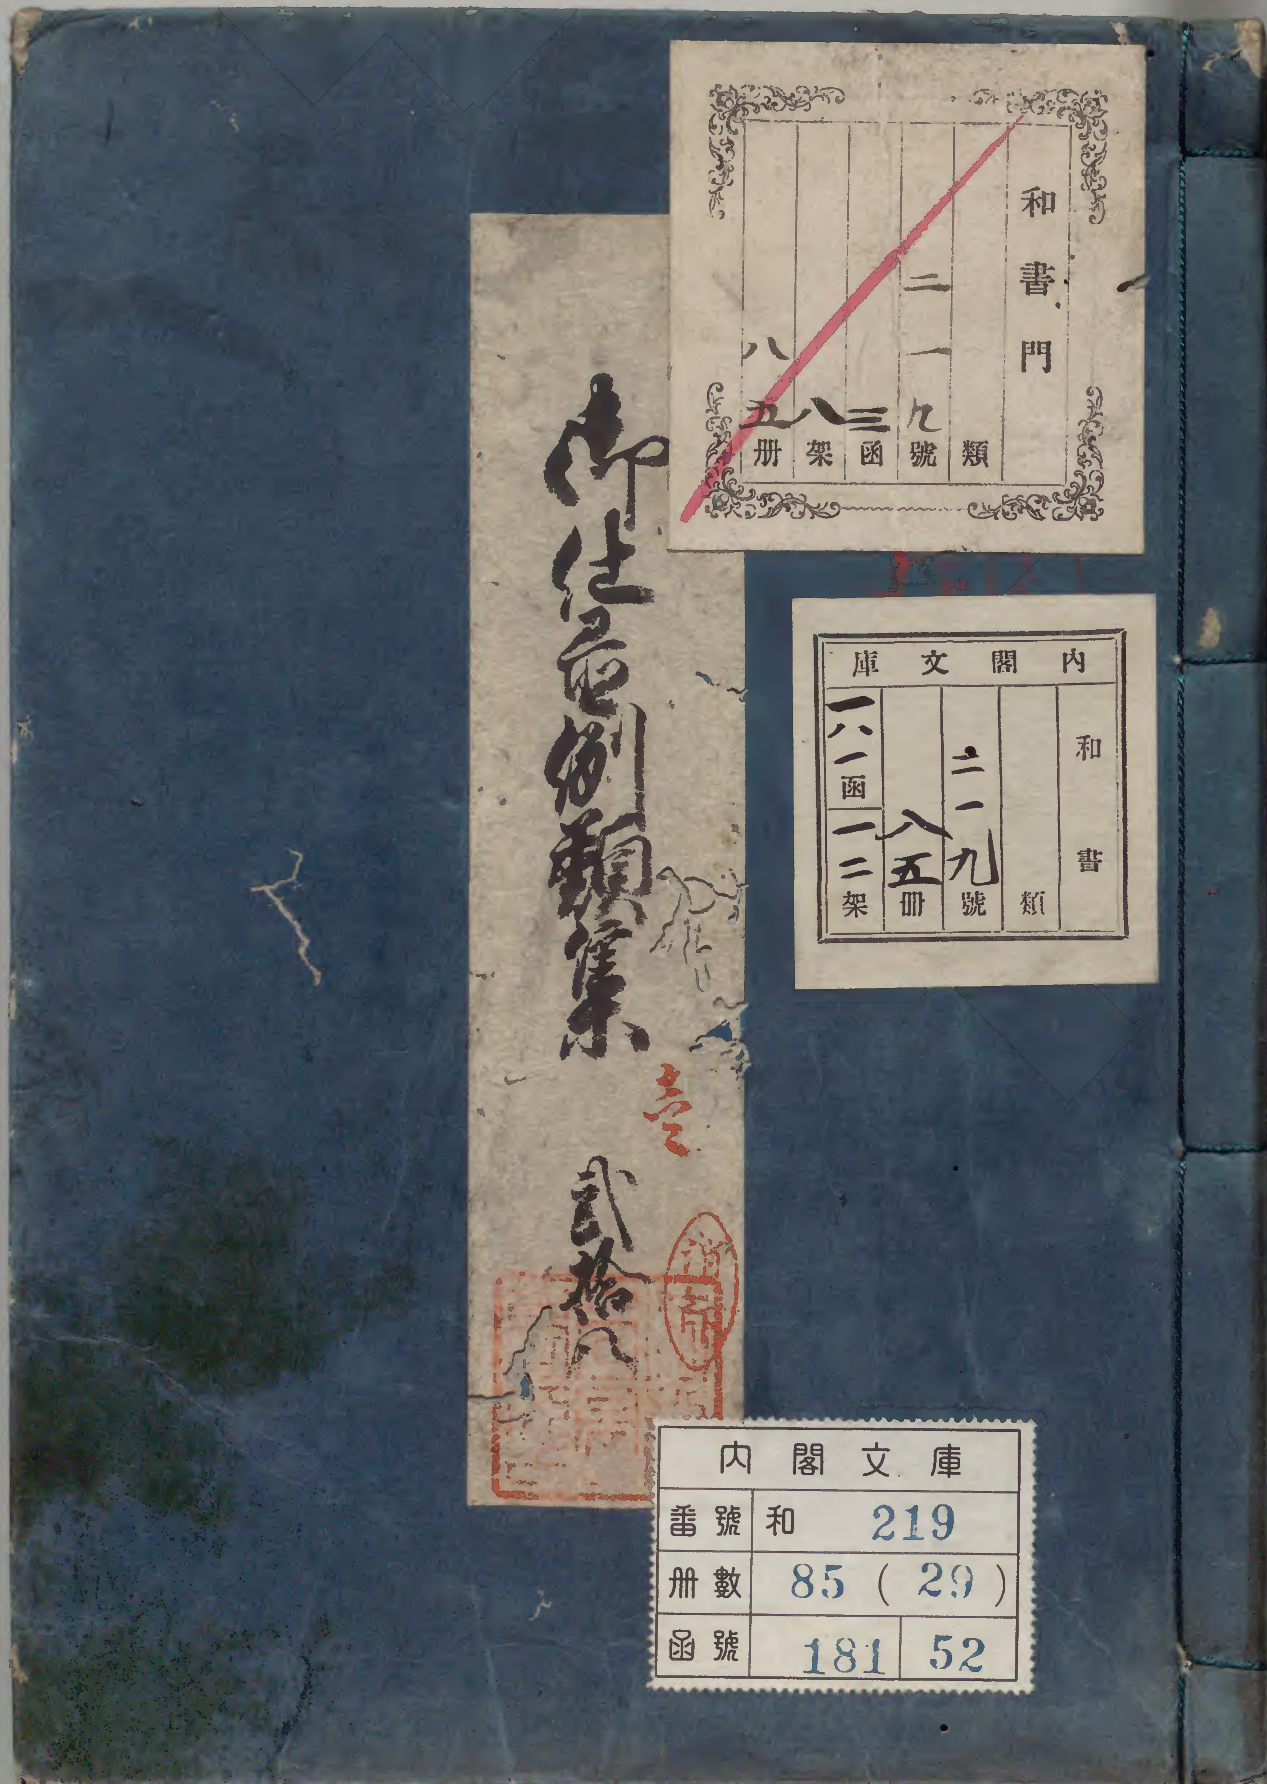 和書門
類
二一九號
三函
八架
八五册
御仕置例類集
壹
貳拾八
内閣文庫
和書
類
二一九號
八五冊
一八一函
一二架
内閣文庫
番號 和 219
冊數 85 ( 29 )
函號 181 52